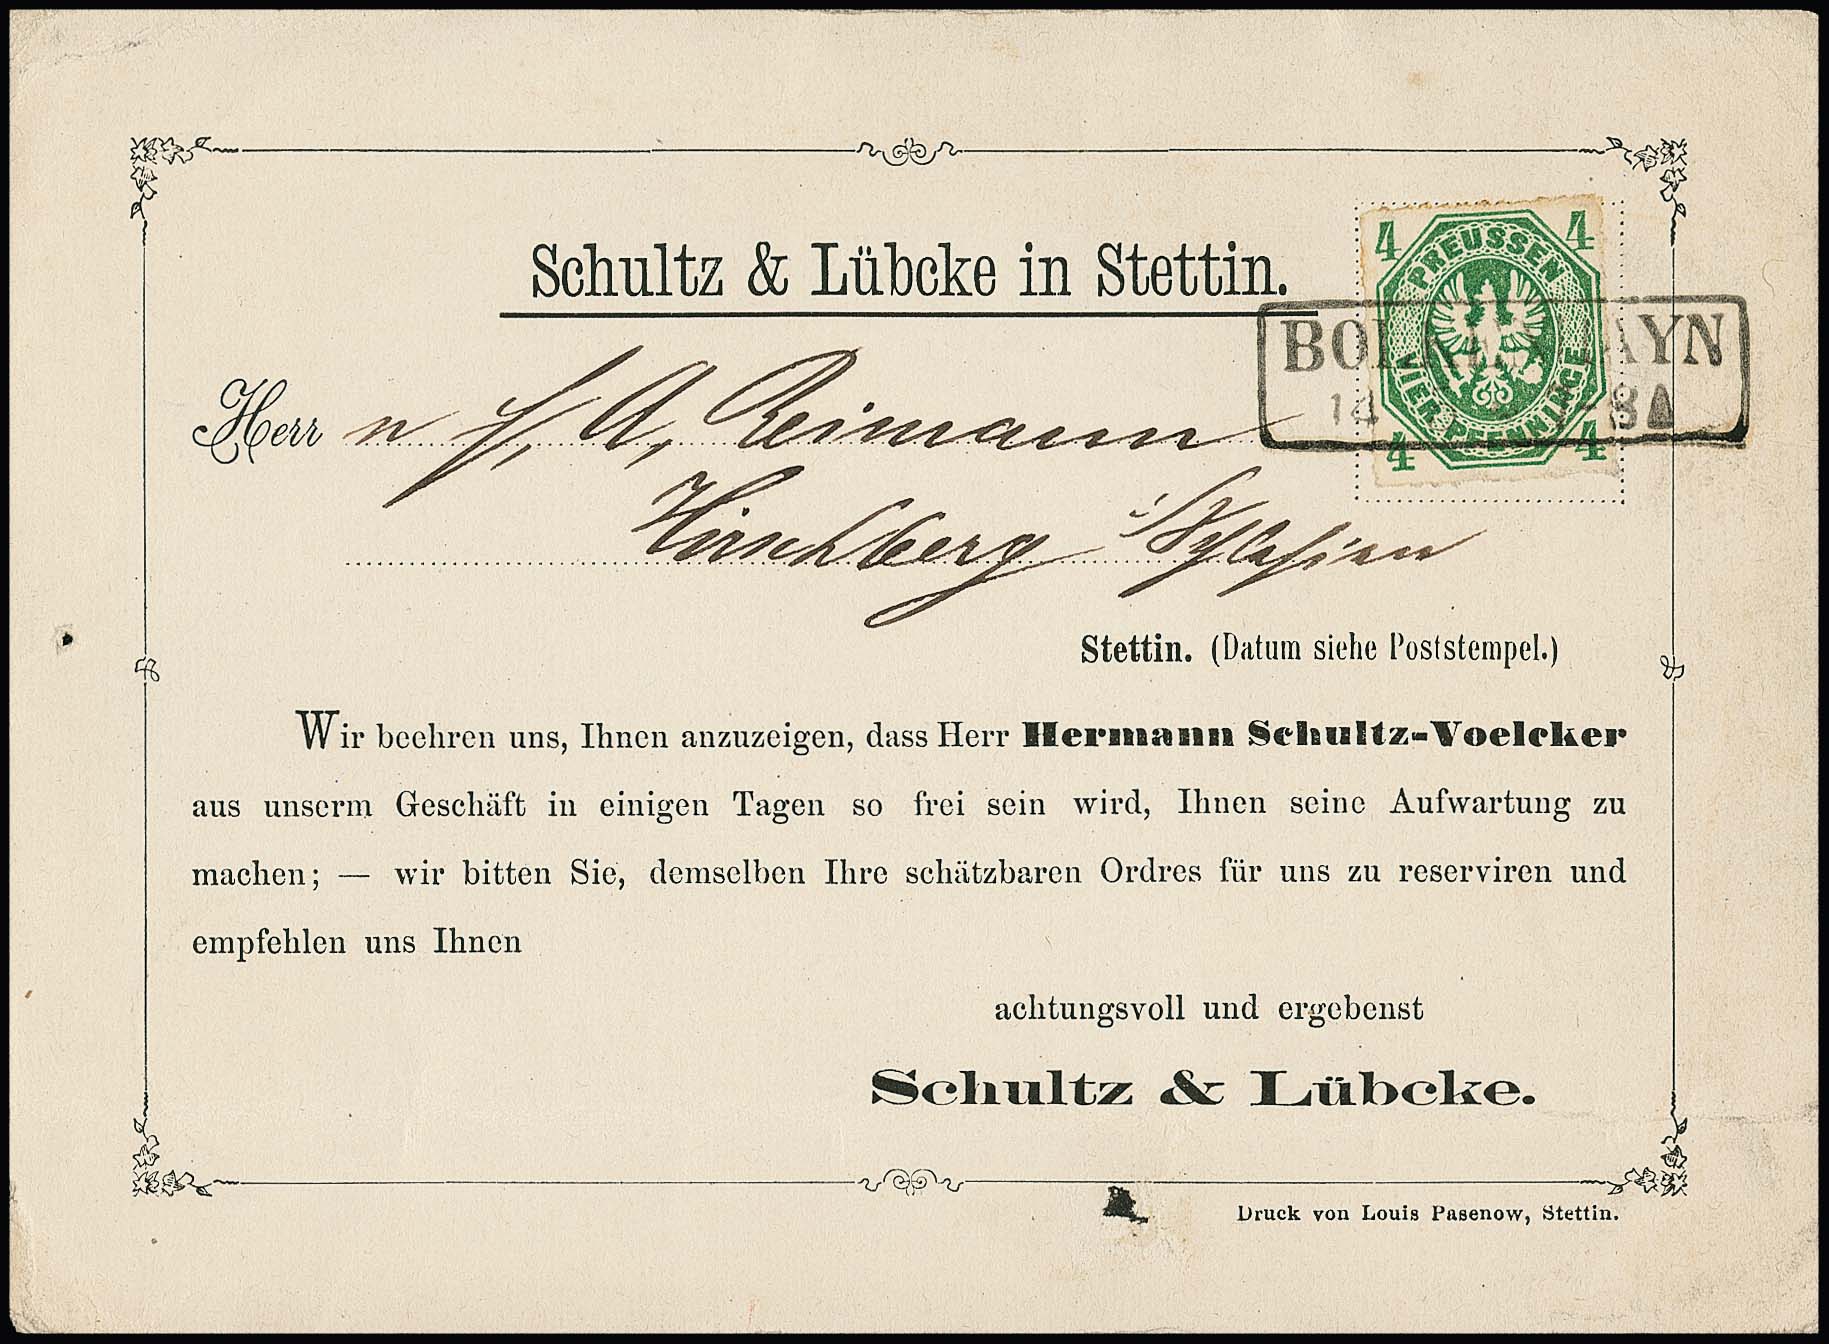 Schultz & Lübcke in Stettin.
4 4
PREUSSEN
VIER PFENNINGE
4 4
Herrn F. A. Reimann
Hirschberg Schlesien
Stettin. (Datum siehe Poststempel.)
Wir beehren uns, Ihnen anzuzeigen, dass Herr Hermann Schultz-Voelcker
aus unserm Geschäft in einigen Tagen so frei sein wird, Ihnen seine Aufwartung zu
machen; — wir bitten Sie, demselben Ihre schätzbaren Ordres für uns zu reserviren und
empfehlen uns Ihnen
achtungsvoll und ergebenst
Schultz & Lübcke.
Druck von Louis Pasenow, Stettin.